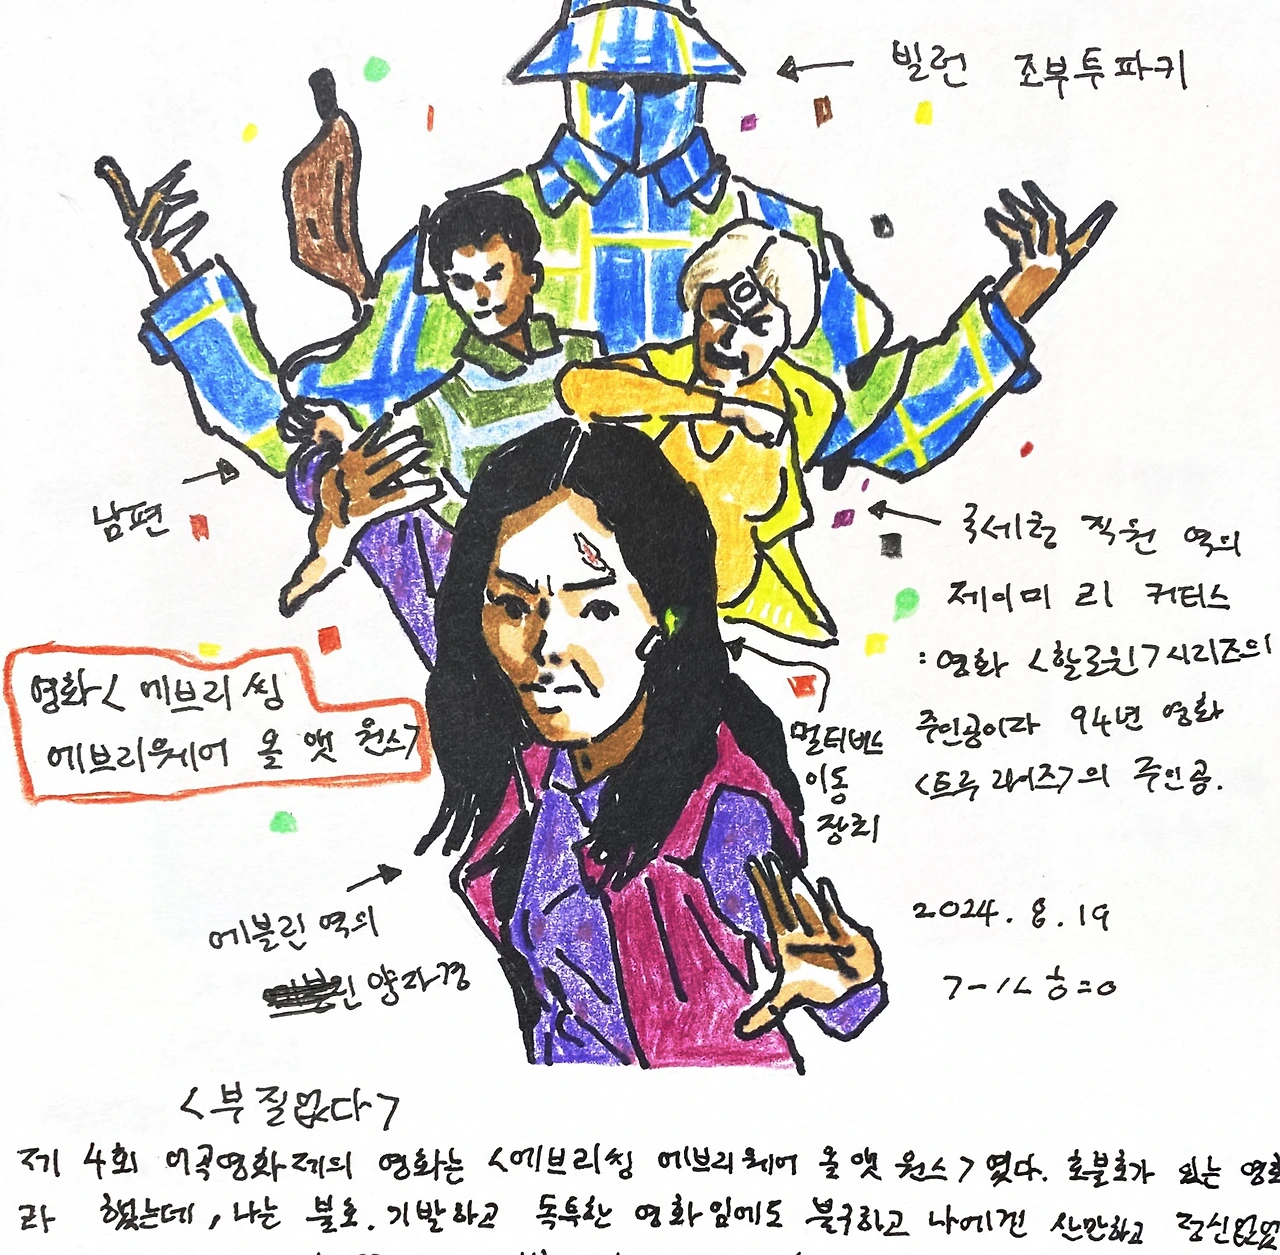 빌런 조부투파키
남편
국세청 직원 역의
제이미 리 커티스
: 영화 <할로윈> 시리즈의
주인공이라 94년 영화
<트루 라이즈>의 주인공.
영화 < 에브리씽
에브리웨어 올 앳 원스>
멀티버스
이동
장치
에블린 역의
양자경
2024. 8. 19
<부질없다>
제 4회 이곡영화제의 영화는 <에브리씽 에브리웨어 올 앳 원스> 였다. 호불호가 있는 영화
라 했는데, 나는 불호. 기발하고 독특한 영화임에도 불구하고 나에겐 산만하고 정신없었